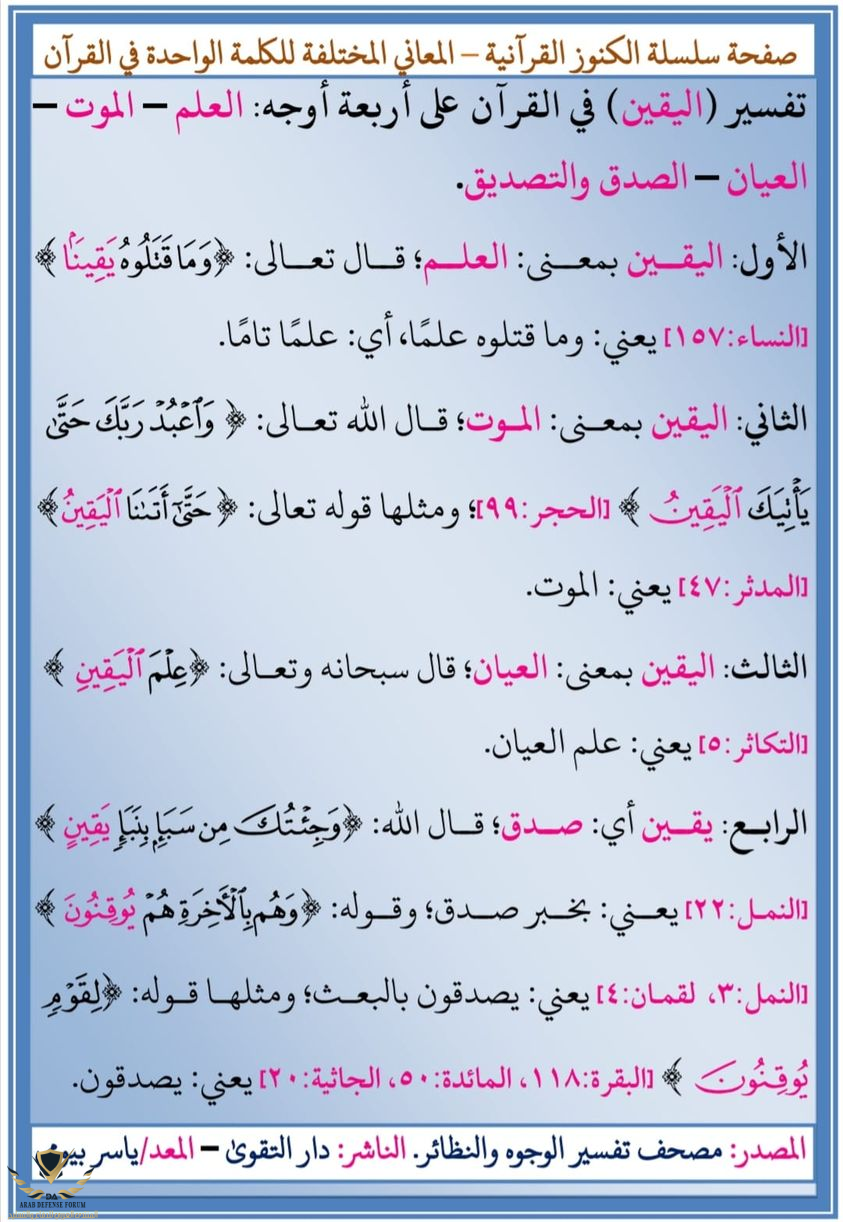 صفحة سلسلة الكنوز القرآنية – المعاني المختلفة للكلمة الواحدة في القرآن
تفسير (اليقين) في القرآن على أربعة أوجه: العلم – الموت –
العيان – الصدق والتصديق.
الأول: اليقـــين بمعـــنى: العلـــم؛ قـــال تعـــالى: ﴿وَمَا قَتَلُوهُ يَقِينَۢا﴾
[النساء:١٥٧] يعني: وما قتلوه علمًا، أي: علمًا تامًا.
الثاني: اليقين بمعـنى: المـوت؛ قـال الله تعـالى: ﴿ وَٱعۡبُدۡ رَبَّكَ حَتَّىٰ
يَأۡتِيَكَ ٱلۡيَقِينُ ﴾ [الحجر:٩٩]؛ ومثلها قوله تعالى: ﴿ حَتَّىٰٓ أَتَىٰنَا ٱلۡيَقِينُ﴾
[المدثر:٤٧] يعني: الموت.
الثالث: اليقين بمعنى: العيان؛ قال سبحانه وتعـالى: ﴿عِلۡمَ ٱلۡيَقِينِ ﴾
[التكاثر:٥] يعني: علم العيان.
الرابـع: يقـين أي: صـدق؛ قـال الله: ﴿وَجِئۡتُكَ مِن سَبَإِۭ بِنَبَإٖ يَقِينٍ ﴾
[النمـل:٢٢] يعـني: بخـبر صـدق؛ وقـوله: ﴿وَهُم بِٱلۡأٓخِرَةِ هُمۡ يُوقِنُونَ ﴾
[النمل:٣، لقمـان:٤] يعني: يصدقون بالبعـث؛ ومثلهـا قـوله: ﴿لِقَوۡمٖ
يُوقِنُونَ ﴾ [البقرة:١١٨، المائدة:٥٠، الجاثية:٢٠] يعني: يصدقون.
المصدر: مصحف تفسير الوجوه والنظائر. الناشر: دار التقوىٰ – المعد/ياسر
DA
ARAB DEFENSE FORUM